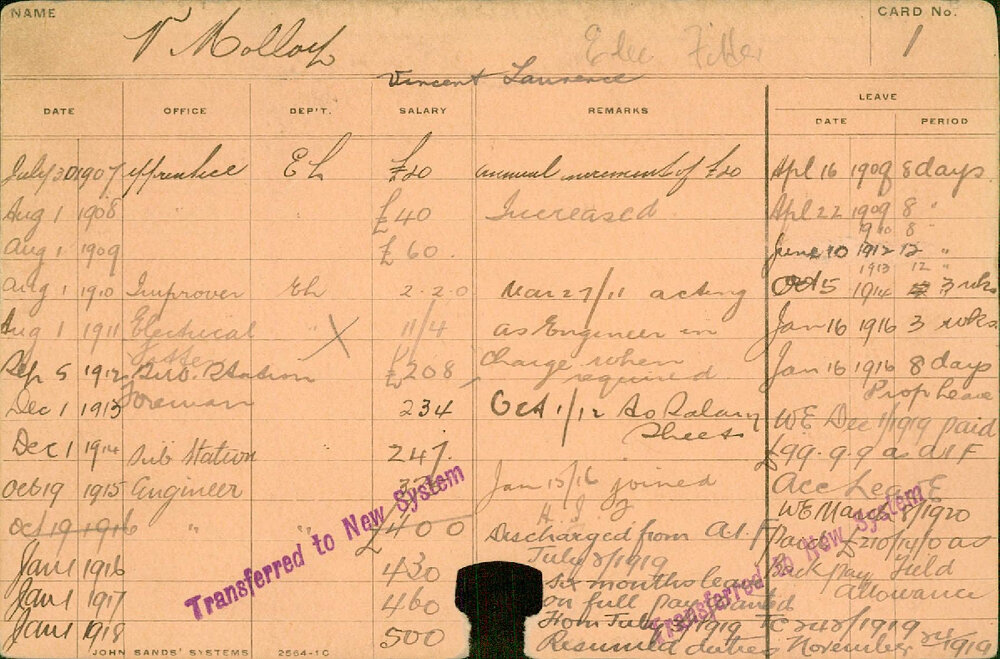 NAME
CARD No.
V Molloy
Elec Fitter
1
Vincent Laurence
LEAVE
DATE OFFICE DEP'T. SALARY REMARKS DATE PERIOD
July 30 1907 Apprentice EL £20 annual increment of £20 Apl 16 1909 8 days
Aug 1 1908 " £40 Increased Apl 22 1909 8 "
1910 8 "
Aug 1 1909 £60 June 10 1912 12 "
1913 12 "
Aug 1 1910 Improver EL 2.2.0 Mar 27/11 acting Oct 5 1914 3 wks
Aug 1 1911 Electrical " X 11/4 as Engineer in Jan 16 1916 3 wks
Fitter Charge when
Sep 5 1912 Sub. Station £208 required Jan 16 1916 8 days
Prop Leave
Dec 1 1913 Foreman 234 Oct 1/12 to Salary
Sheet WE Dec 11/1919 paid
Dec 1 1914 Sub Station 247. £99.9.9 as dif
Oct 19 1915 Engineer Jan 15/16 joined Acc Leave
Oct 19 1916 " " £400 WE March 1920
Discharged from A.I.F Paid £210/14/0 as
July 8/1919 Back pay Field
Jan 1 1916 430 Six months leave allowance
Jan 1 1917 460 on full pay granted
from July 8/1919 TC 1919
Jan 1 1918 500 Resumed duties November 1919
Transferred to New System
Transferred to New System
JOHN SANDS' SYSTEMS 2564-1C